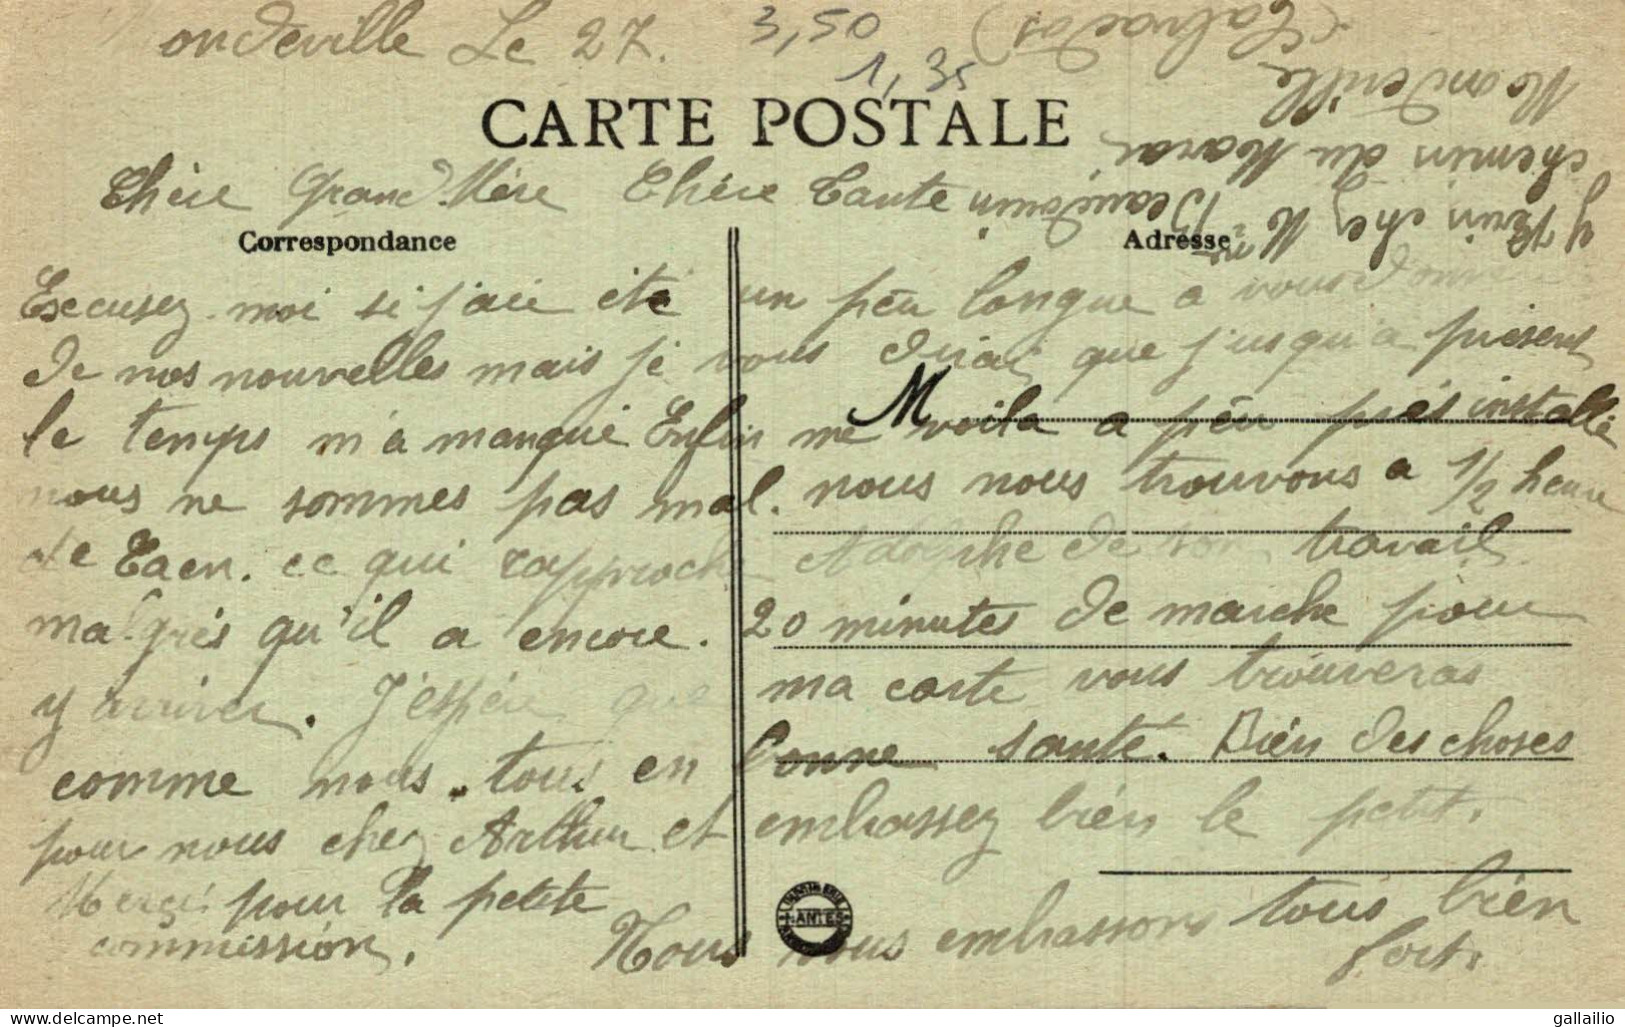 ondeville Le 27.
3,50
1,35
CARTE POSTALE
Chère Grand'Mère Chère Tante
Correspondance
Adresse
Excusez moi si j'aie été un peu longue a vous donner
de nos nouvelles mais je vous dirai que j'usqu'a présent
le temps m'a manqué Enfin me voila a peu près installé
M
nous ne sommes pas mal. nous nous trouvons a 1/2 heure
de Caen. ce qui rapproche Adolphe de son travail
malgrés qu'il a encore. 20 minutes de marche pour
y arriver. J'espère que ma carte vous trouveras
comme nous. tous en bonne santé. Bien des choses
pour nous chez Arthur et embrassez bien le petit.
Merci pour la petite
commission.
Nous vous embrassons tous bien
fort.
NANTES
chez Mme Beaudouin
chemin du Marai
Mondeville
(Calvados)
gallailio@delcampe.net